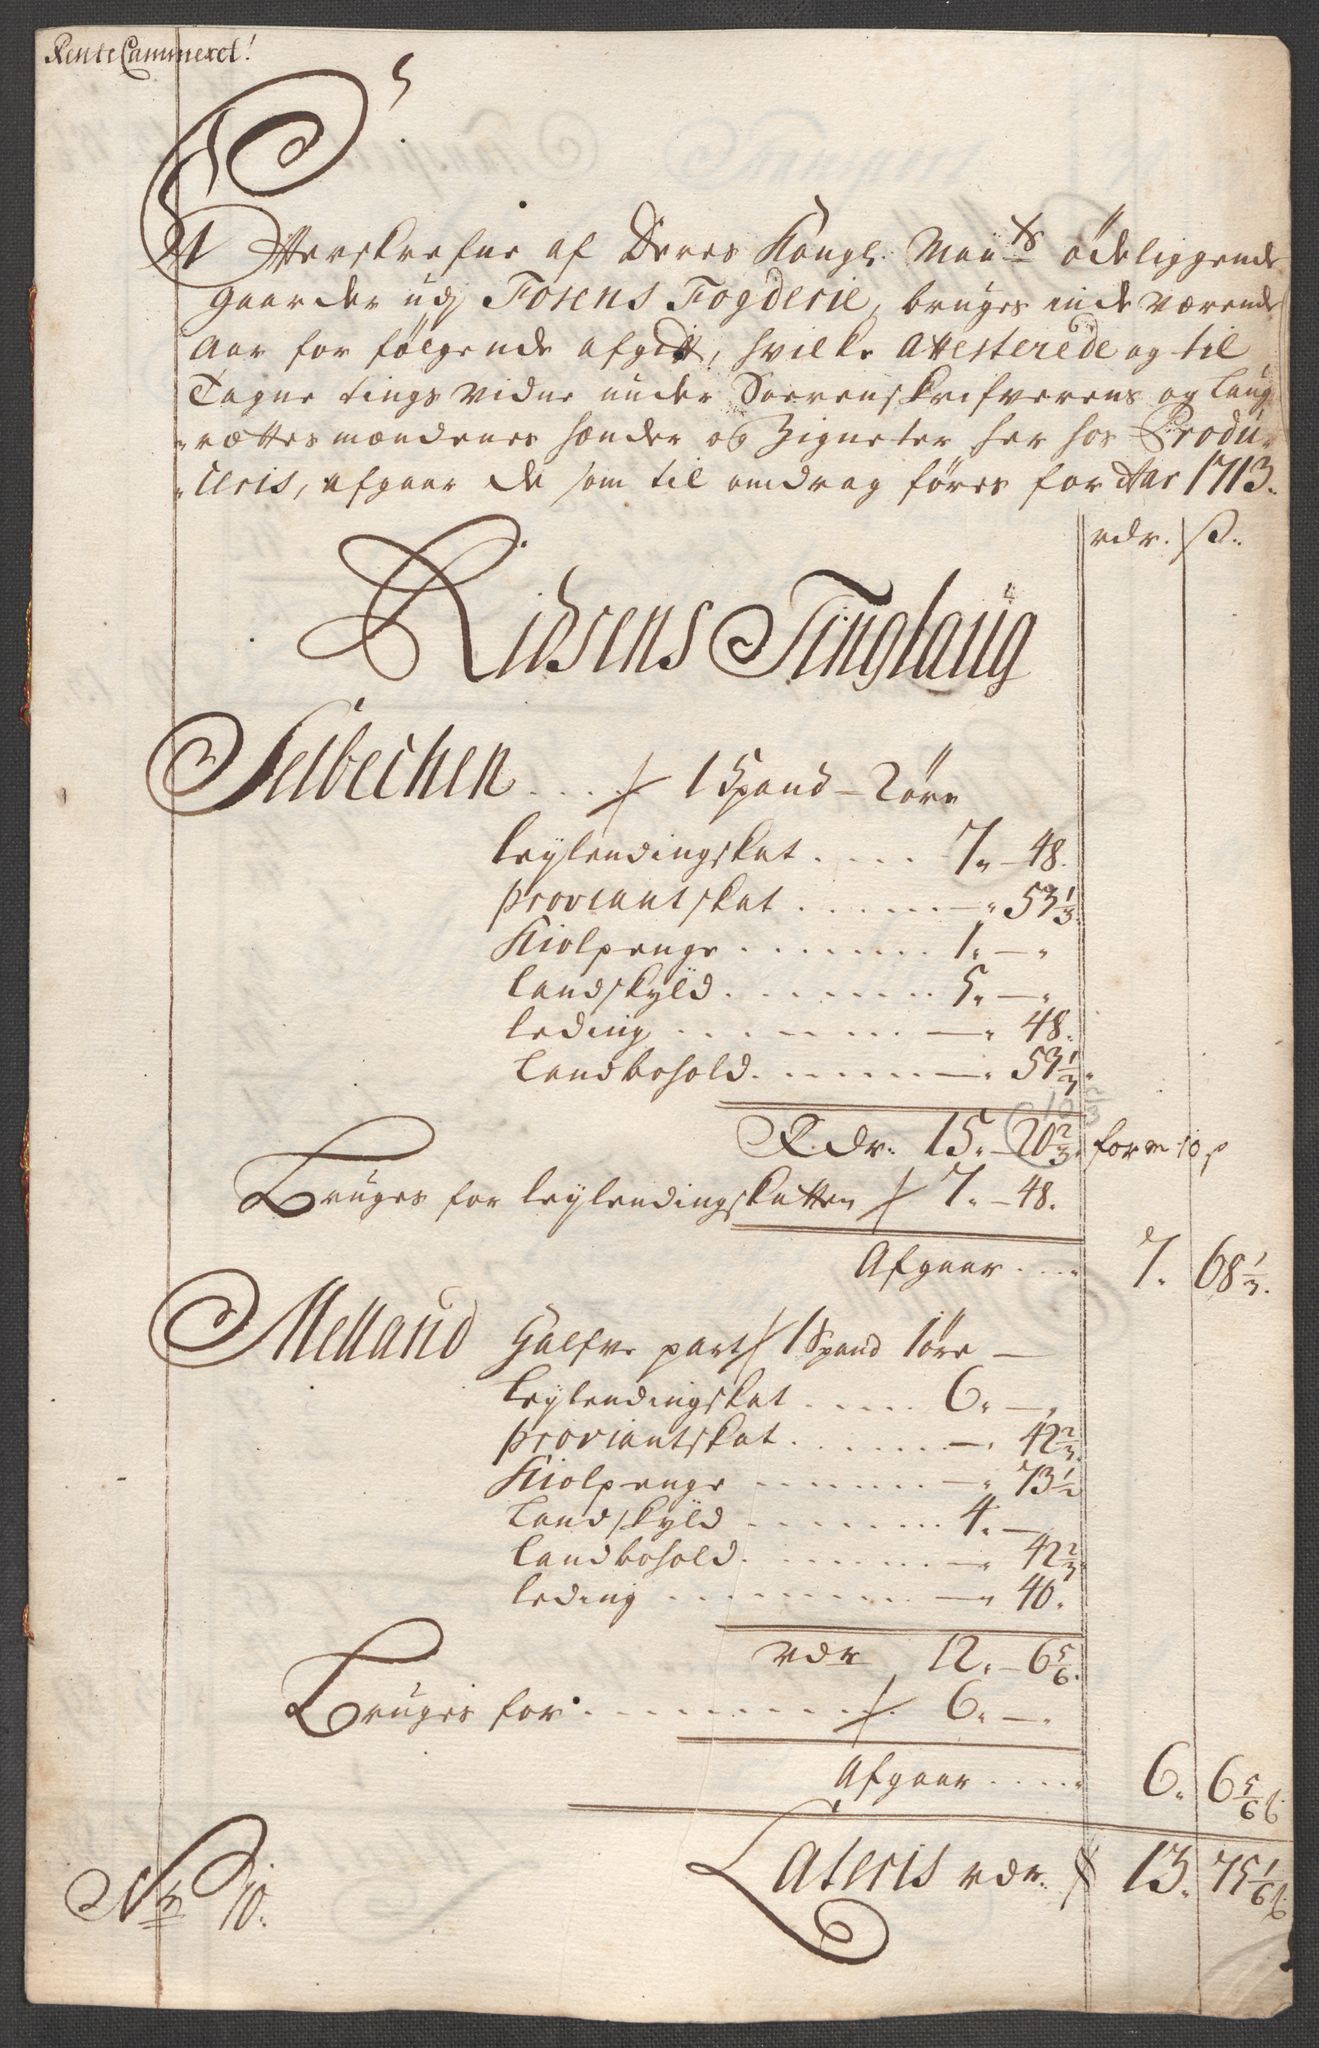 Rente Cammeret!
Efterskrefne af Deres Kongl: May:ts ödeliggende
gaarder udj Fosens Fogderie, bruges inde værende
Aar for følgende afgift, hvilke Attesterede og til
Tagne tings vidne under Soerenskrifverens og laug
"rættesmændenes hænder og Zigneter her hos Produ„
"ceris, afgaar de som til omdrag føres for Aar 1713.
rdr. ß.
Ridsens Tinglaug
Seibechen . . . . / 1 Spand – 2 öre
leylendingskat . . . . 7„ – 48.
proviantskat . . . . . . – „ 53 1/3.
Kiolpenge . . . . . . . 1„ – „
Landskÿld . . . . . . . 5„ – „
leding . . . . . . . – „ 48.
Landbohold . . . . . . – „ 53 1/3.
10 2/3
R.dr. 15„ – 20 2/3. for m 10 ß
Bruges for leylendingskatten / 7„ – 48.
Afgaar . . . . 7. 68 1/3.
Melland halfve part / 1 Spand 1 öre –
leylendingskat . . . . . 6„ – „
proviantskat . . . . . . – „ 42 2/3.
Kiolpenge . . . . . . . – „ 73 1/2
Landskyld . . . . . . . 4„ –
Landbohold . . . . . . . – „ 42 2/3.
leding . . . . . . . . – „ 40.
rdr 12„ – 6 5/6.
Bruges for . . . . . . . . . / 6„ – „
Afgaar . . . . . 6. 6 5/6 ß
Lateris rdr. / 13. 75 1/6 ß
No 10.